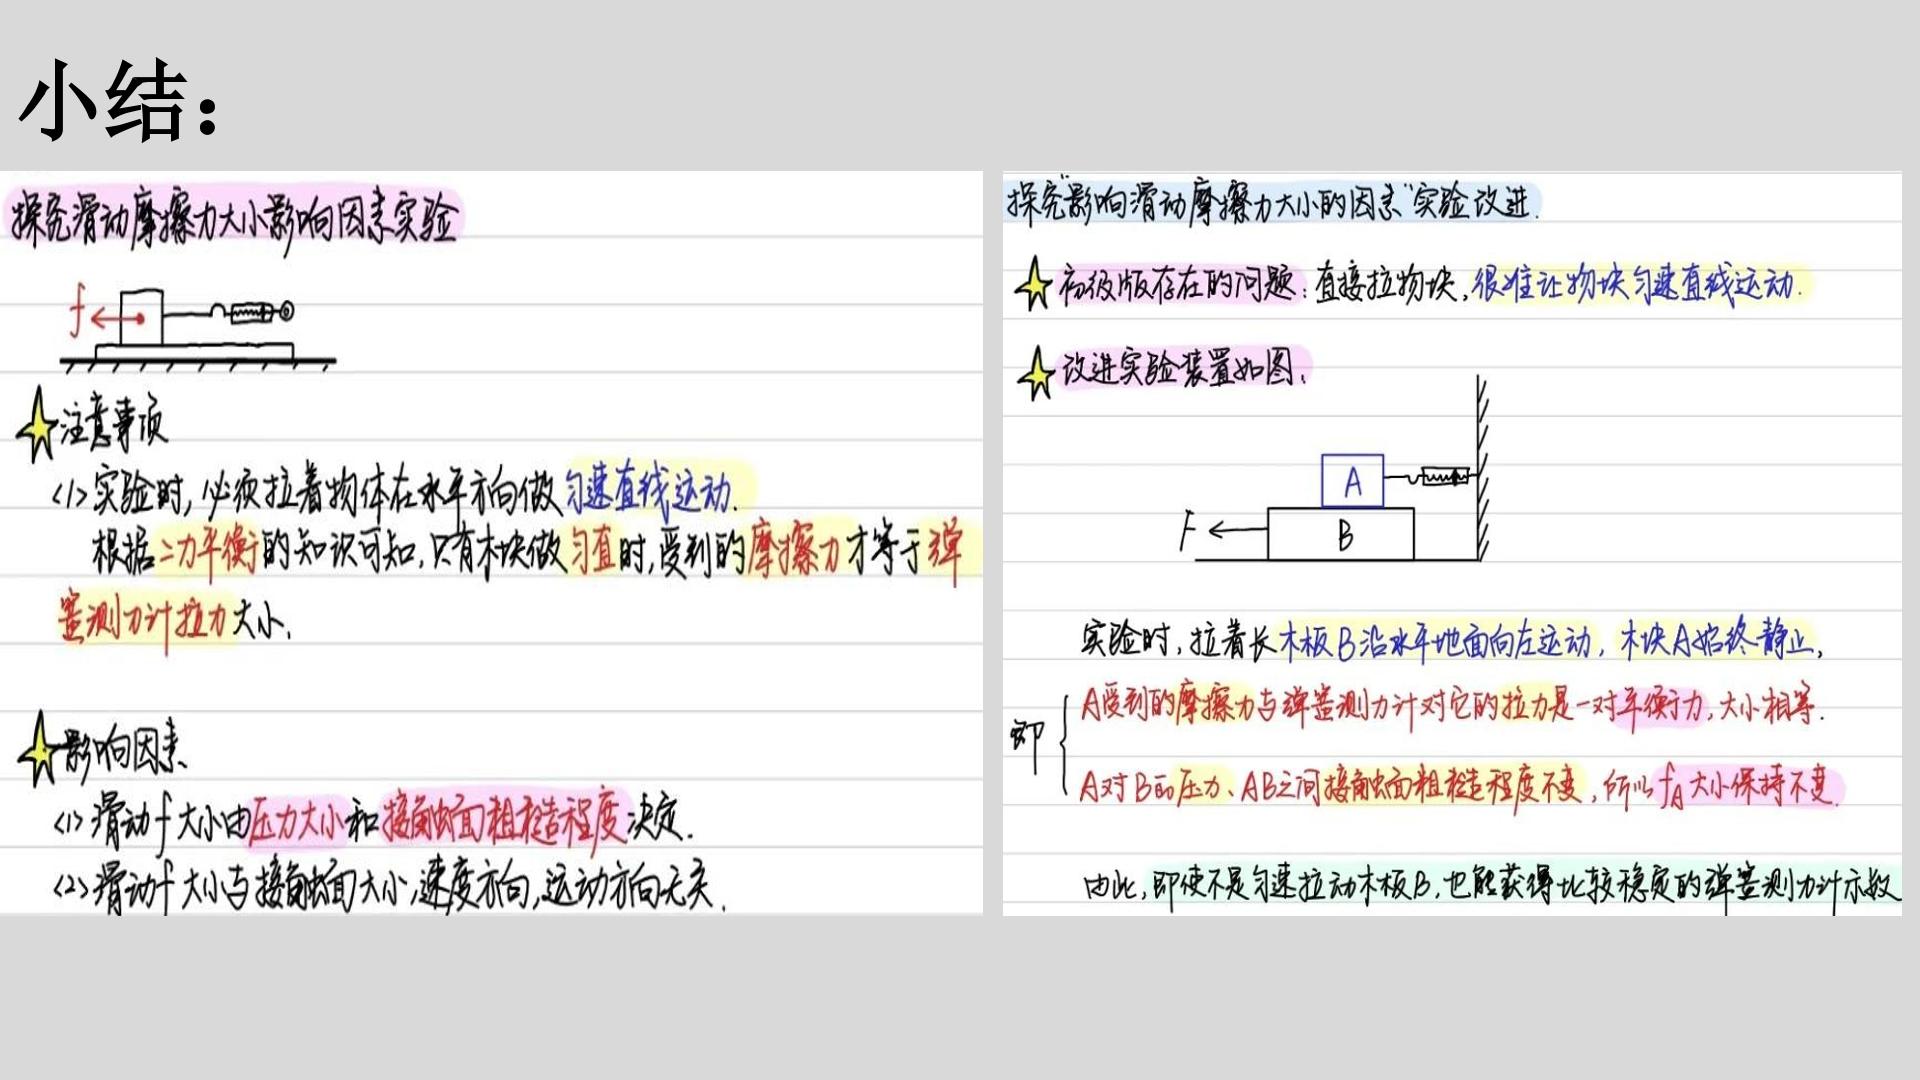 小结：
探究滑动摩擦力大小影响因素实验
f
注意事项
<1>实验时,必须拉着物体在水平方向做匀速直线运动.
根据二力平衡的知识可知,只有木块做匀直时,受到的摩擦力才等于弹
簧测力计拉力大小.
影响因素
<1>滑动f大小由压力大小和接触面粗糙程度决定.
<2>滑动f大小与接触面大小,速度方向,运动方向无关.
探究"影响滑动摩擦力大小的因素"实验改进.
初级版存在的问题:直接拉物块,很难让物块匀速直线运动.
改进实验装置如图.
A
F
B
实验时,拉着长木板B沿水平地面向左运动,木块A始终静止,
即
A受到的摩擦力与弹簧测力计对它的拉力是一对平衡力,大小相等.
A对B的压力、AB之间接触面粗糙程度不变,所以fA大小保持不变.
由此,即使不是匀速拉动木板B,也能获得比较稳定的弹簧测力计示数